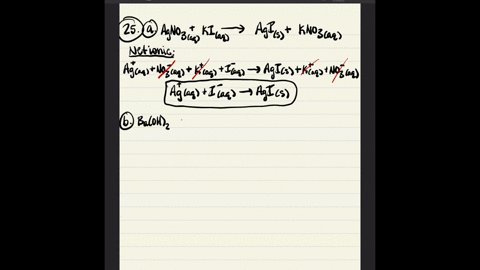 25. a) AgNO₃(aq) + KI(aq) → AgI(s) + KNO₃(aq)
Net ionic:
Ag⁺(aq) + NO₃⁻(aq) + K⁺(aq) + I⁻(aq) → AgI(s) + K⁺(aq) + NO₃⁻(aq)
Ag⁺(aq) + I⁻(aq) → AgI(s)
b. Ba(OH)₂